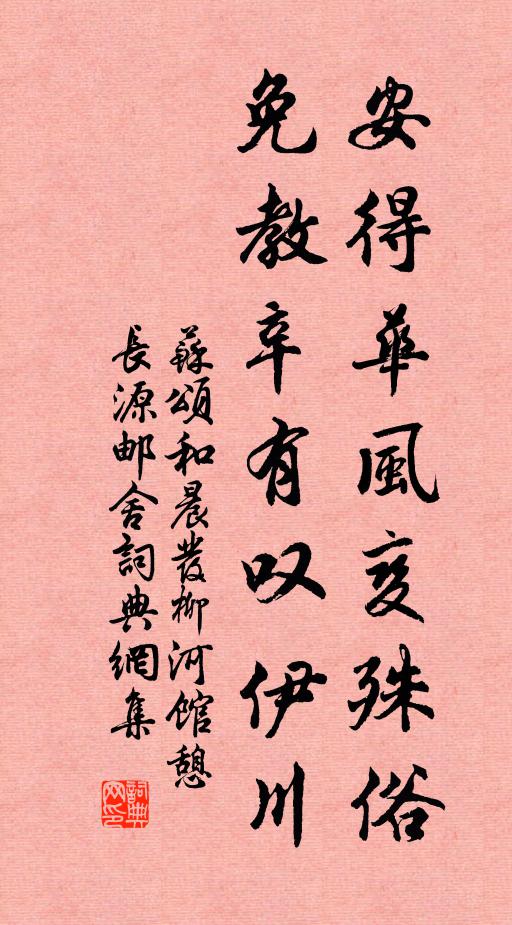 安得華風変殊俗
免教辛有叹伊川
蘇頌和晨發柳河館憩
長源邮舍詞典網集
詞典网印